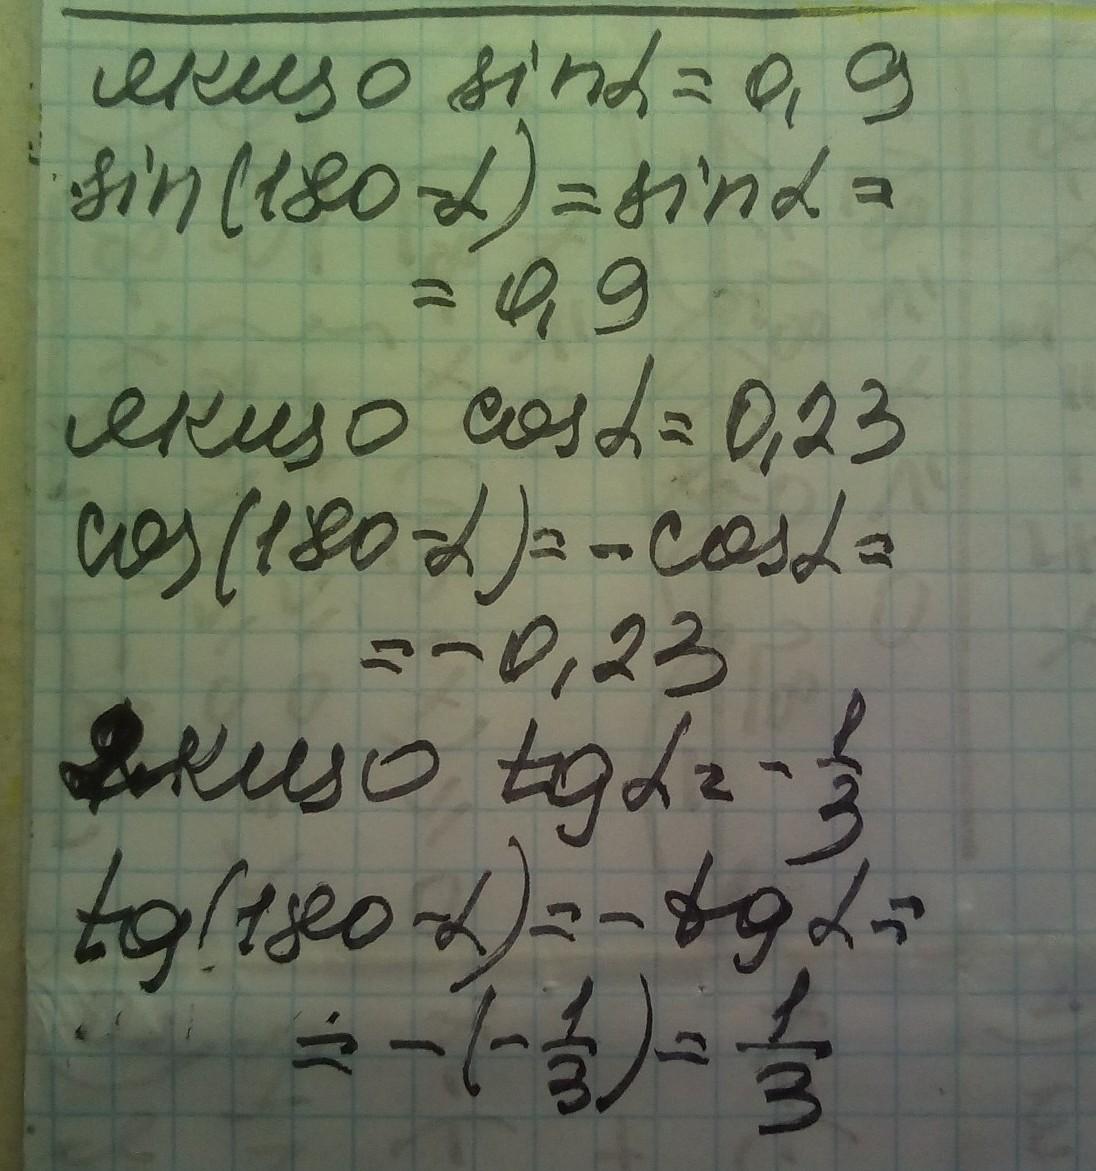 якщо sinα = 0,9
sin(180-α) = sinα =
= 0,9
якщо cosα = 0,23
cos(180-α) = -cosα =
= -0,23
якщо tgα = -1/3
tg(180-α) = -tgα =
= -(-1/3) = 1/3